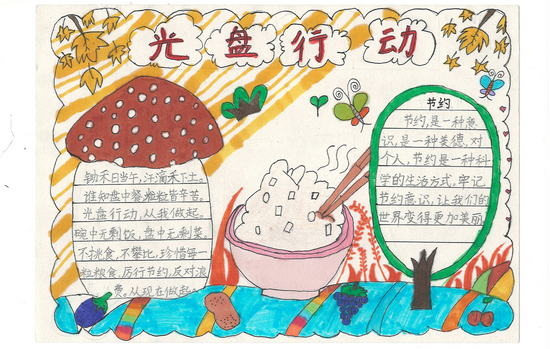 光盘行动
锄禾日当午，汗滴禾下土。
谁知盘中餐，粒粒皆辛苦。
光盘行动，从我做起。
碗中无剩饭，盘中无剩菜。
不挑食，不攀比，珍惜每一
粒粮食，厉行节约，反对浪
费。从现在做起。
节约
节约，是一种意
识，是一种美德。对
个人，节约是一种科
学的生活方式。牢记
节约意识，让我们的
世界变得更加美丽